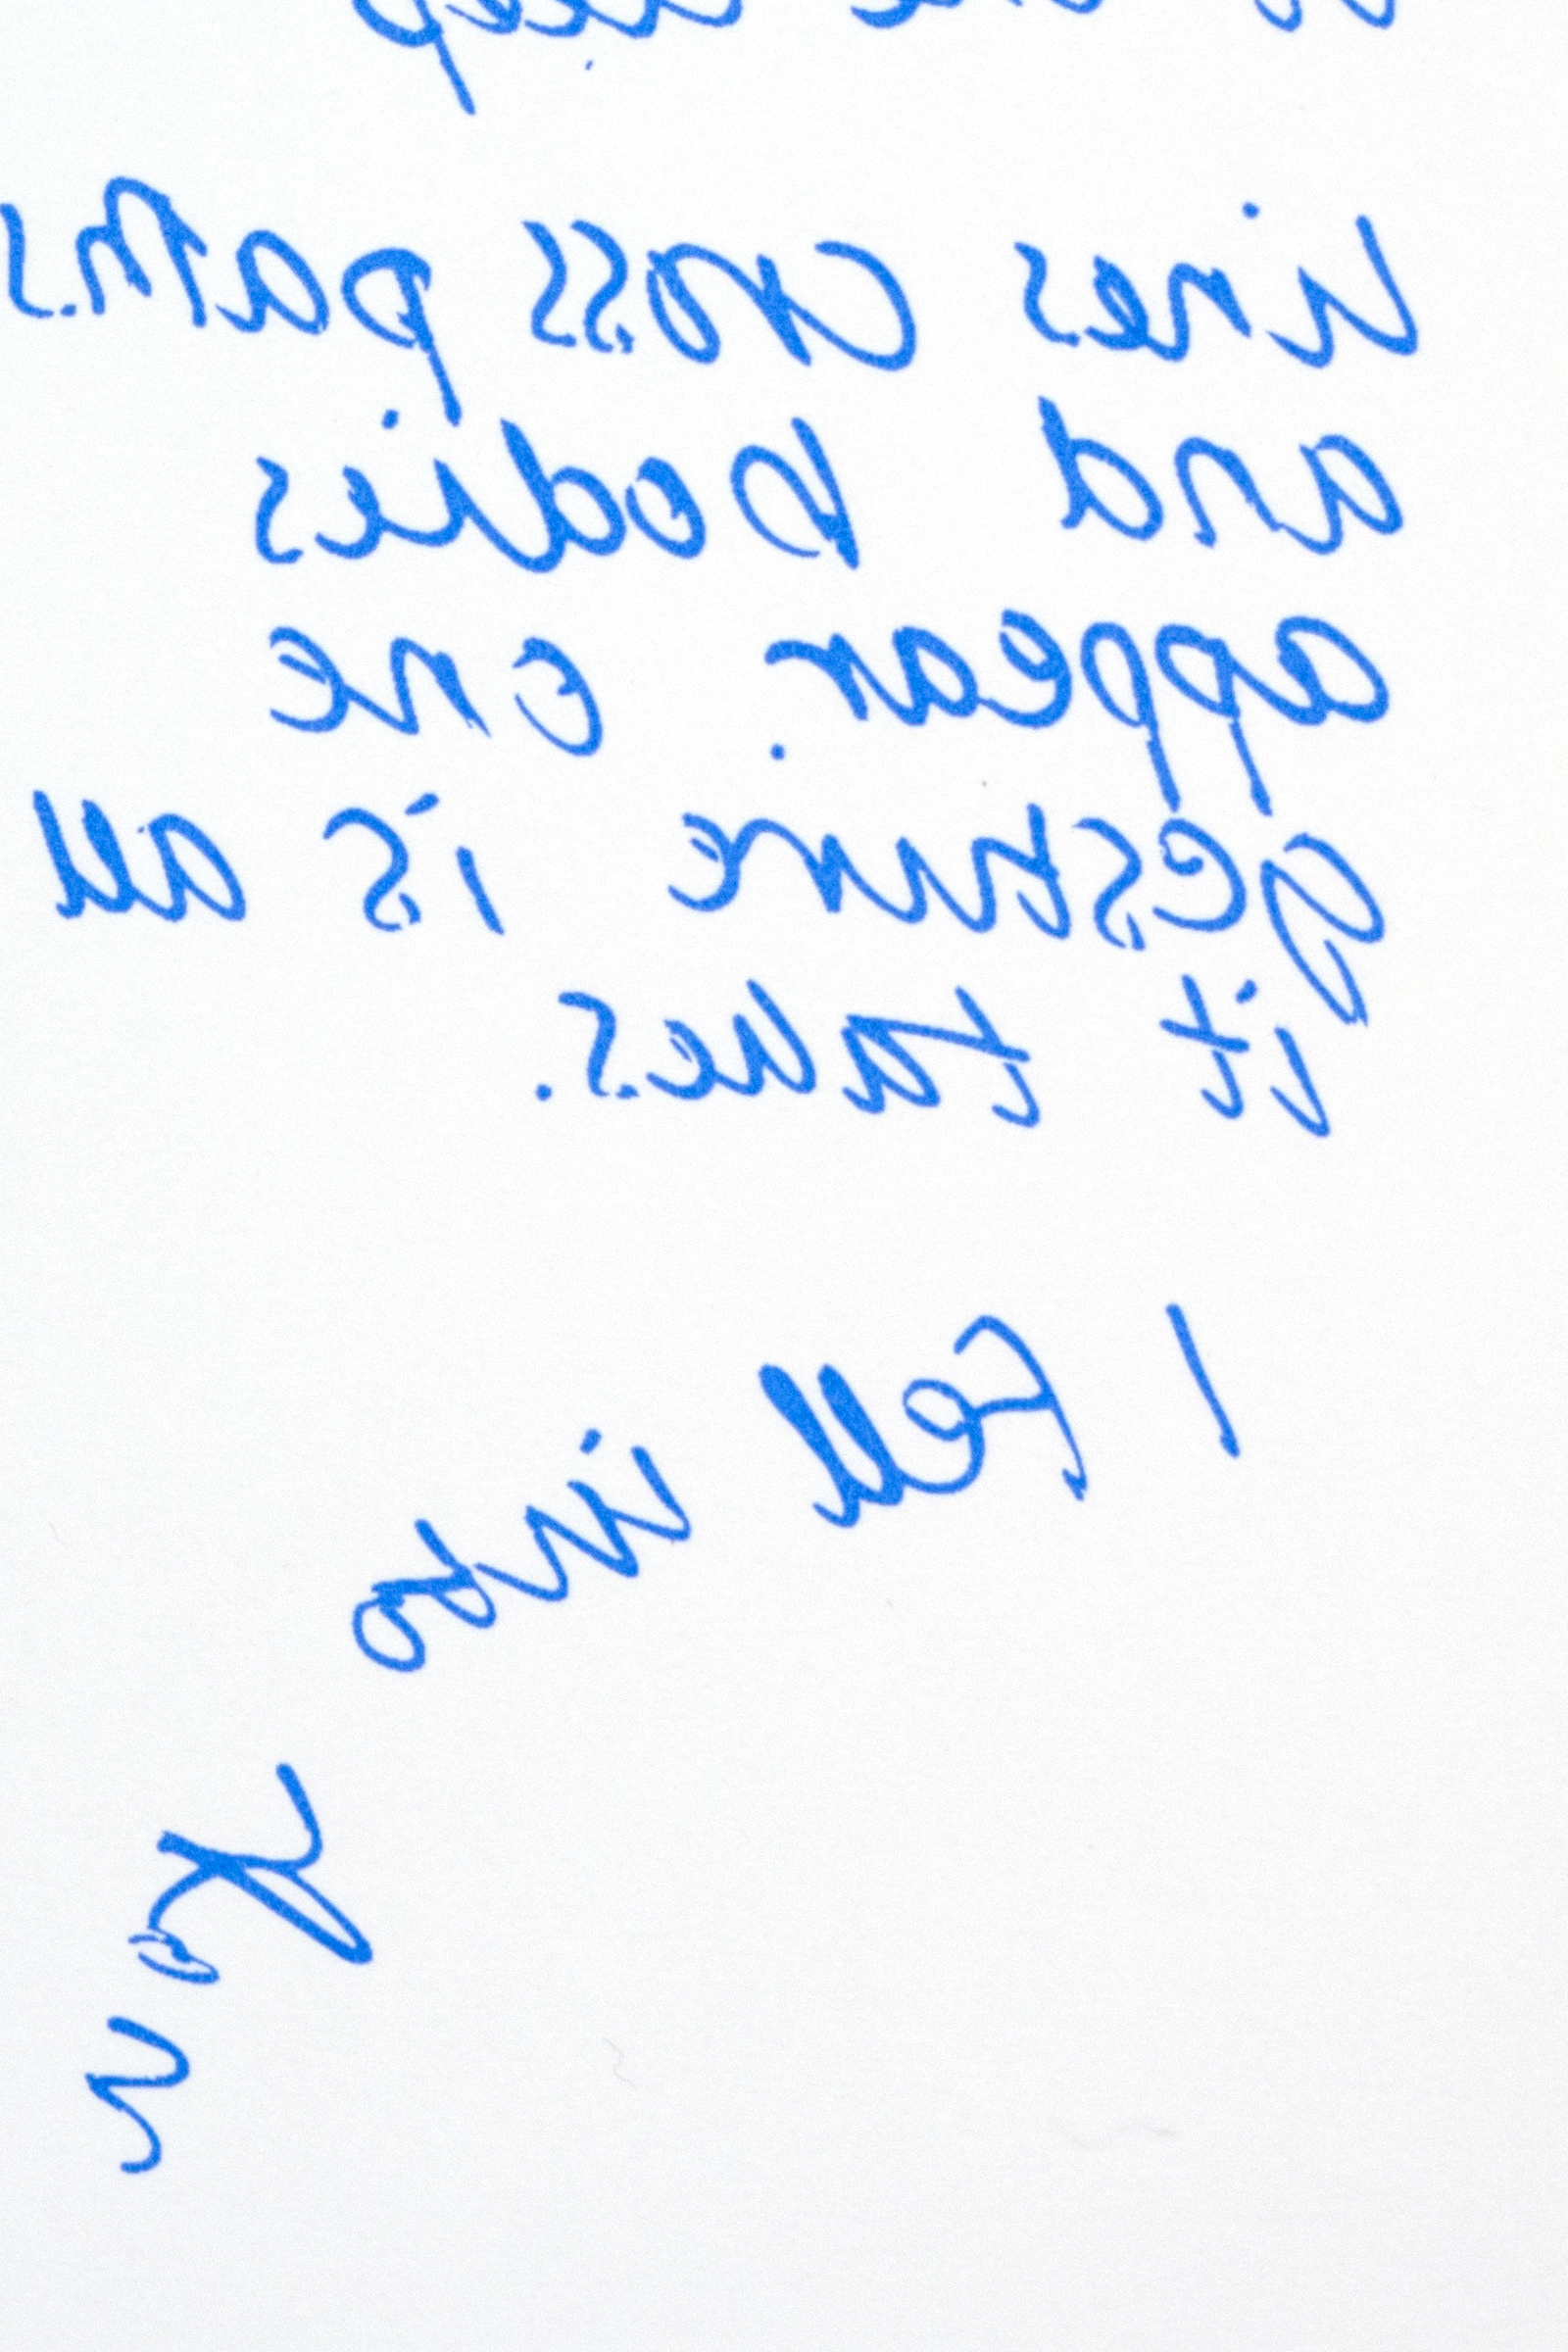 lines cross paths
and bodies
appear. one
gesture is all
it takes.
I fell into
Ken